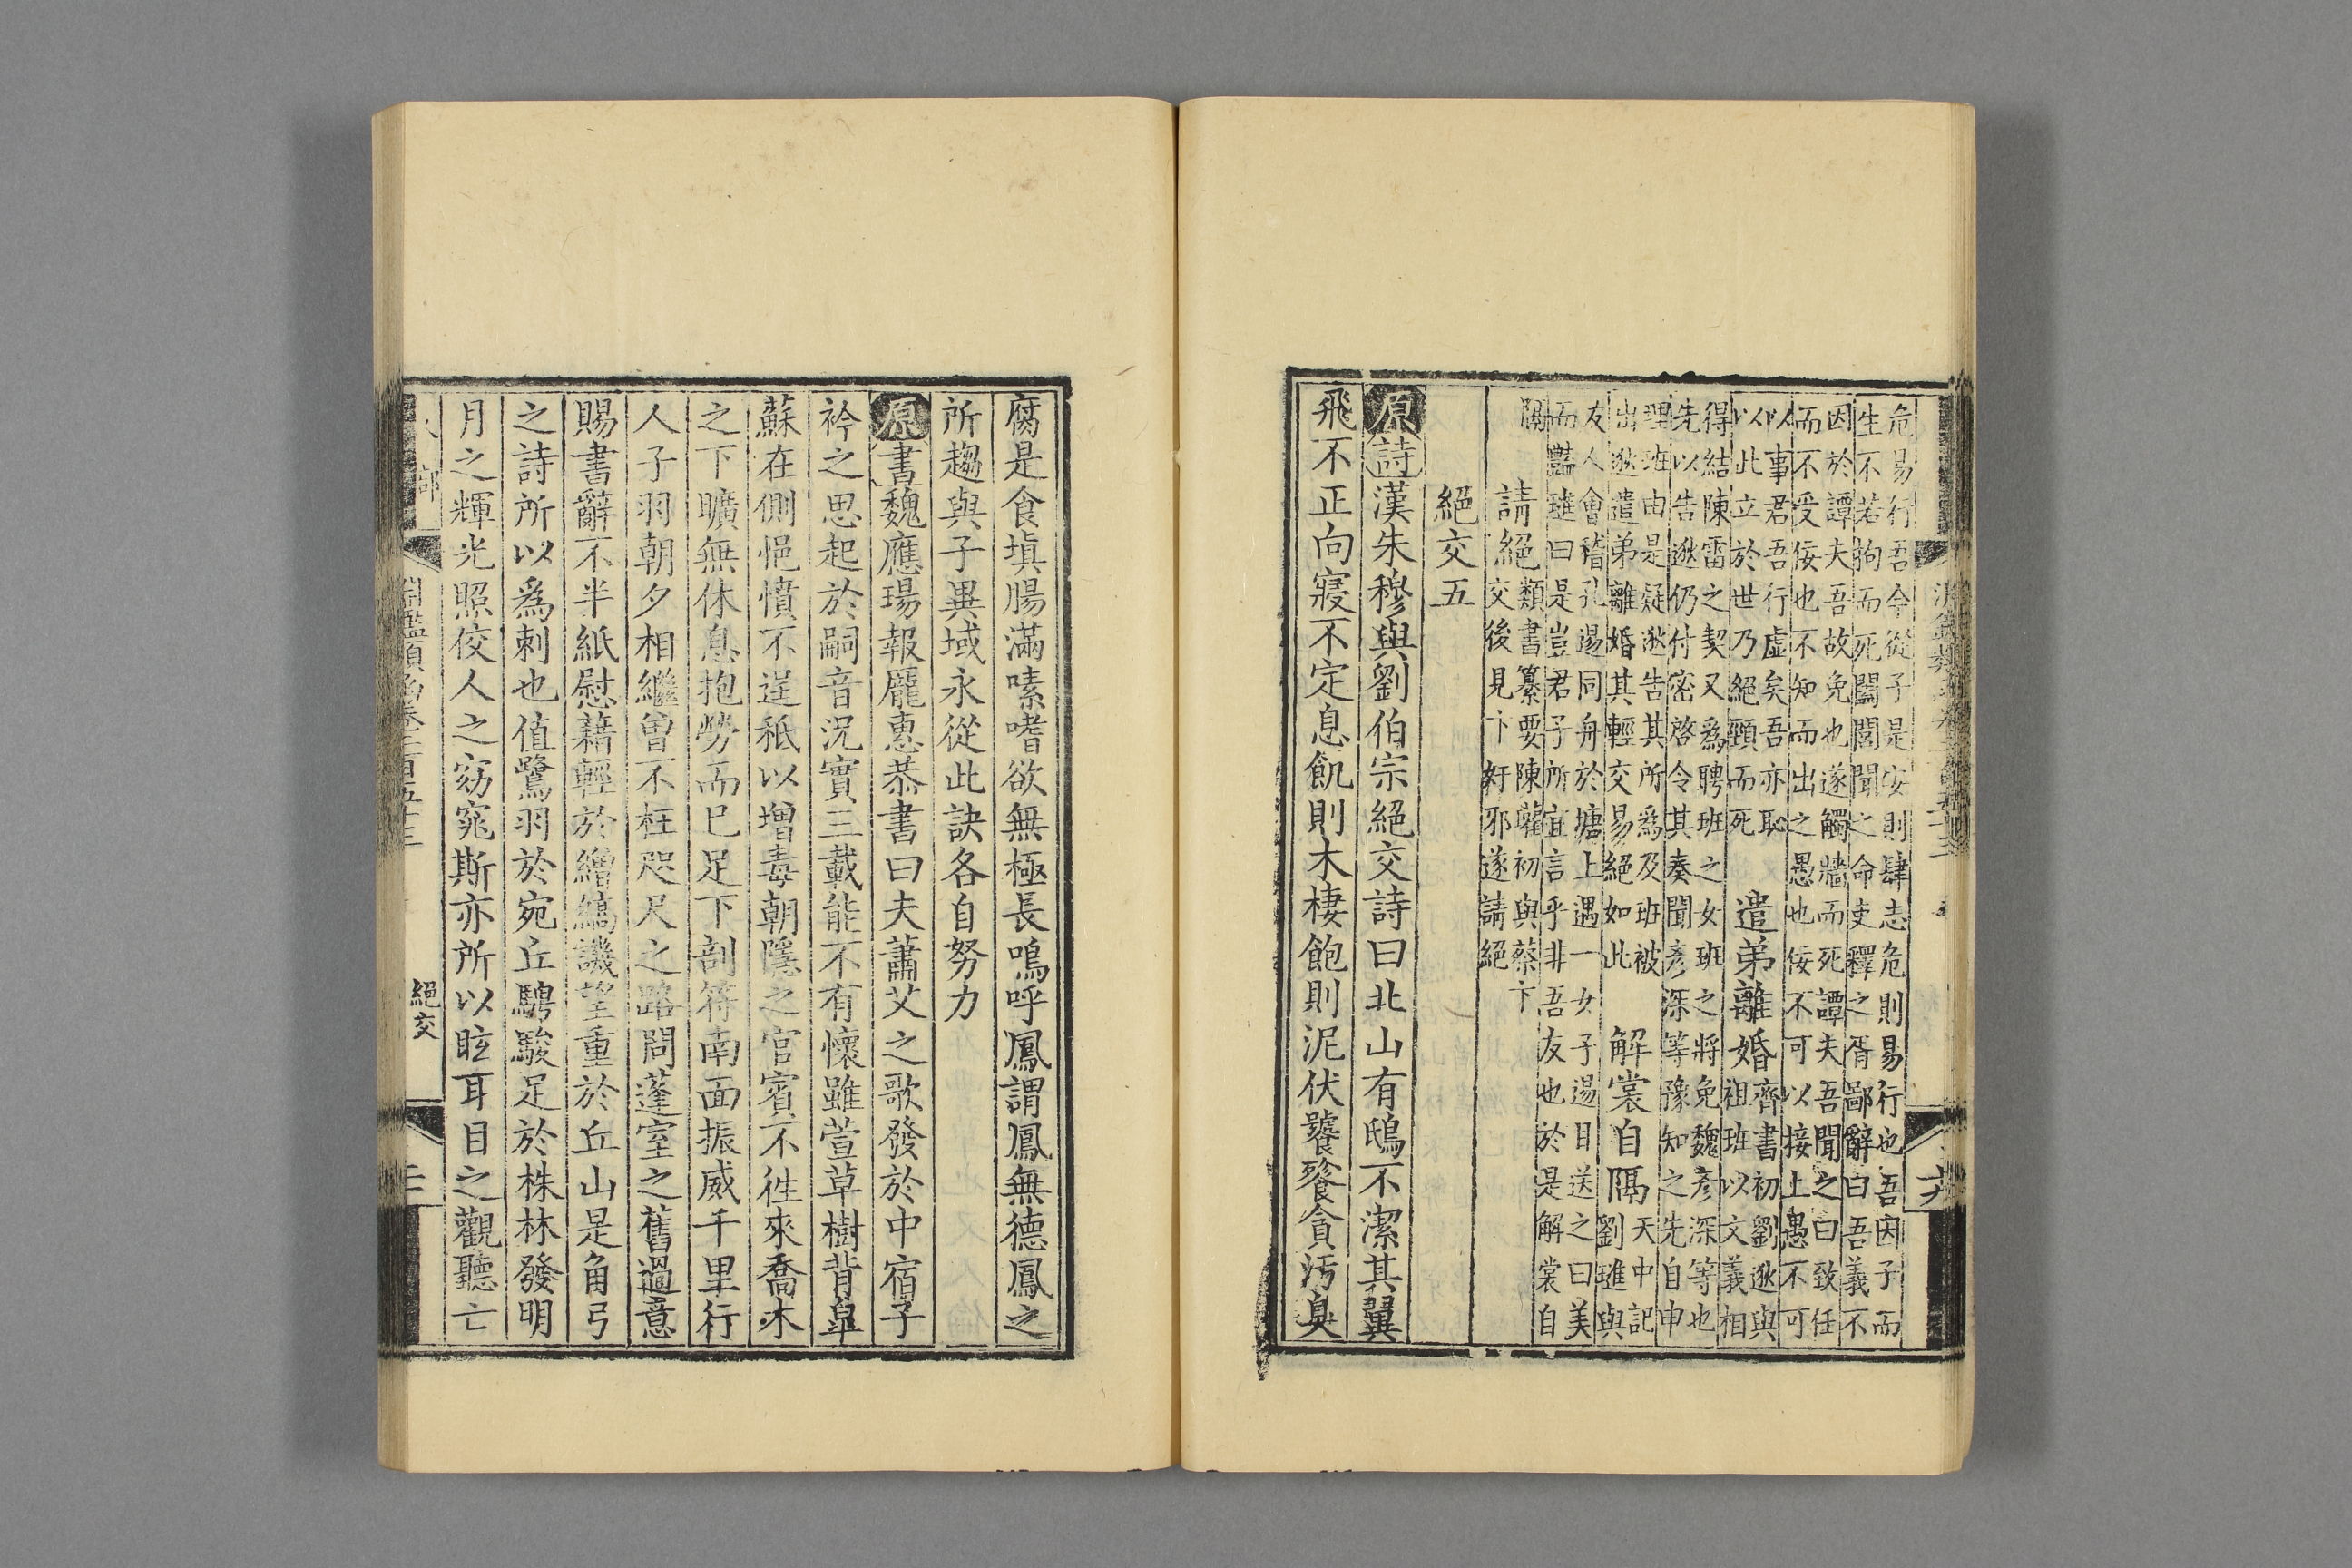 危易行吾今從子是安則肆志危則易行也吾因子而
生不若拘而死闔閭聞之命吏釋之胥鄙辭曰吾義不
因於譚夫吾故免也遂觸牆而死譚夫吾聞之曰致任
而不受佞也不知而出之愚也佞不可以接上愚不可
以事君吾行虛矣吾亦恥
以此立於世乃絕頸而死
遣弟離婚
齊書初劉逖與
祖班以文義相
得結陳雷之契又為聘班之女班之將免魏彥深等也
先以告逖仍付密啓令其奏聞彥深等豫知之先自申
理班由是疑逖告其所為及班被
出逖遣弟離婚其輕交易絕如此
解裳自隔
天中記
劉璡與
友人會稽孔逷同舟於塘上遇一女子逷目送之曰美
而豔璡曰是豈君子所宜言乎非吾友也於是解裳自
隔
請絕
類書纂要陳蘿初與蔡卞
交後見卞奸邪遂請絕
絕交五
原詩漢朱穆與劉伯宗絕交詩曰北山有鴟不潔其翼
飛不正向寢不定息飢則木棲飽則泥伏饕餮貪污臭
腐是食塡腸滿嗉嗜欲無極長鳴呼鳳謂鳳無德鳳之
所趨與子異域永從此訣各自努力
原書魏應瑒報龐惠恭書曰夫蕭艾之歌發於中宿子
衿之思起於嗣音況實三載能不有懷雖萱草樹背皐
蘇在側悒憤不逞秖以增毒朝隱之官賓不徃來喬木
之下曠無休息抱勞而已足下剖符南面振威千里行
人子羽朝夕相繼曾不枉咫尺之路問蓬室之舊過意
賜書辭不半紙慰藉輕於繒縞譏望重於丘山是角弓
之詩所以爲刺也值鷺羽於宛丘騁駿足於株林發明
月之輝光照佼人之窈窕斯亦所以眩耳目之觀聽亡
淵鑑類函卷二百五十三
絕交